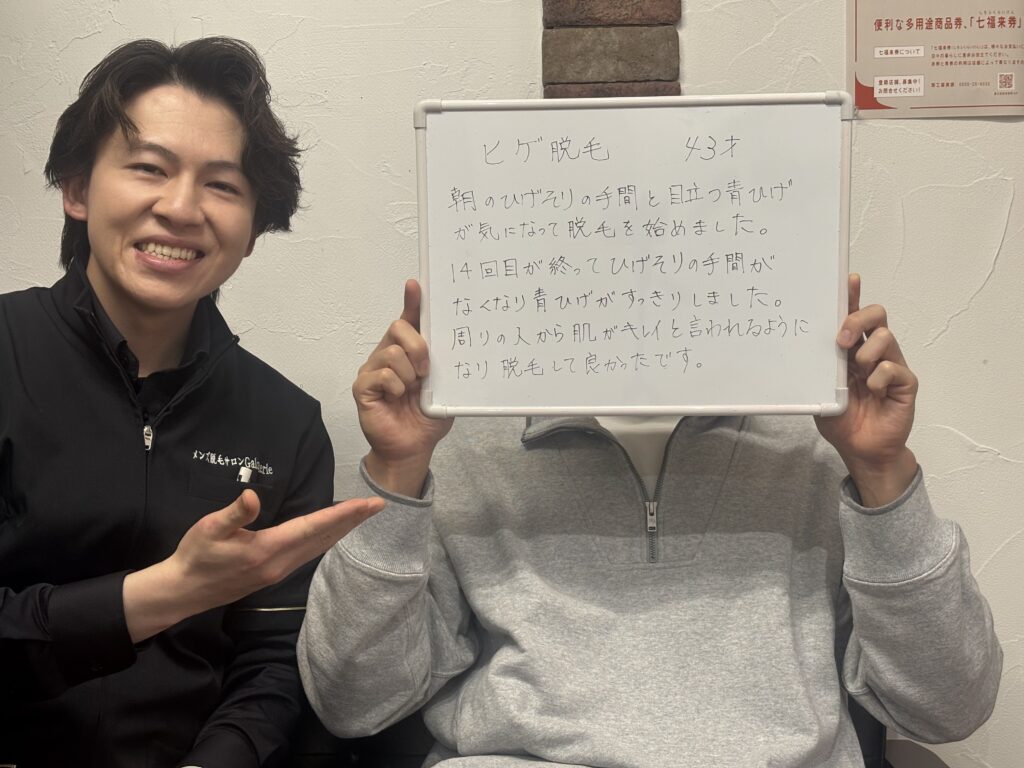 便利な多用途商品券、「七福来券」
七福来券について
登録店舗、募集中!
お問合せください!
ヒゲ脱毛 43才
朝のひげそりの手間と目立つ青ひげ
が気になって脱毛を始めました。
14回目が終ってひげそりの手間が
なくなり青ひげがすっきりしました。
周りの人から肌がキレイと言われるように
なり脱毛して良かったです。
メンズ脱毛サロンGa